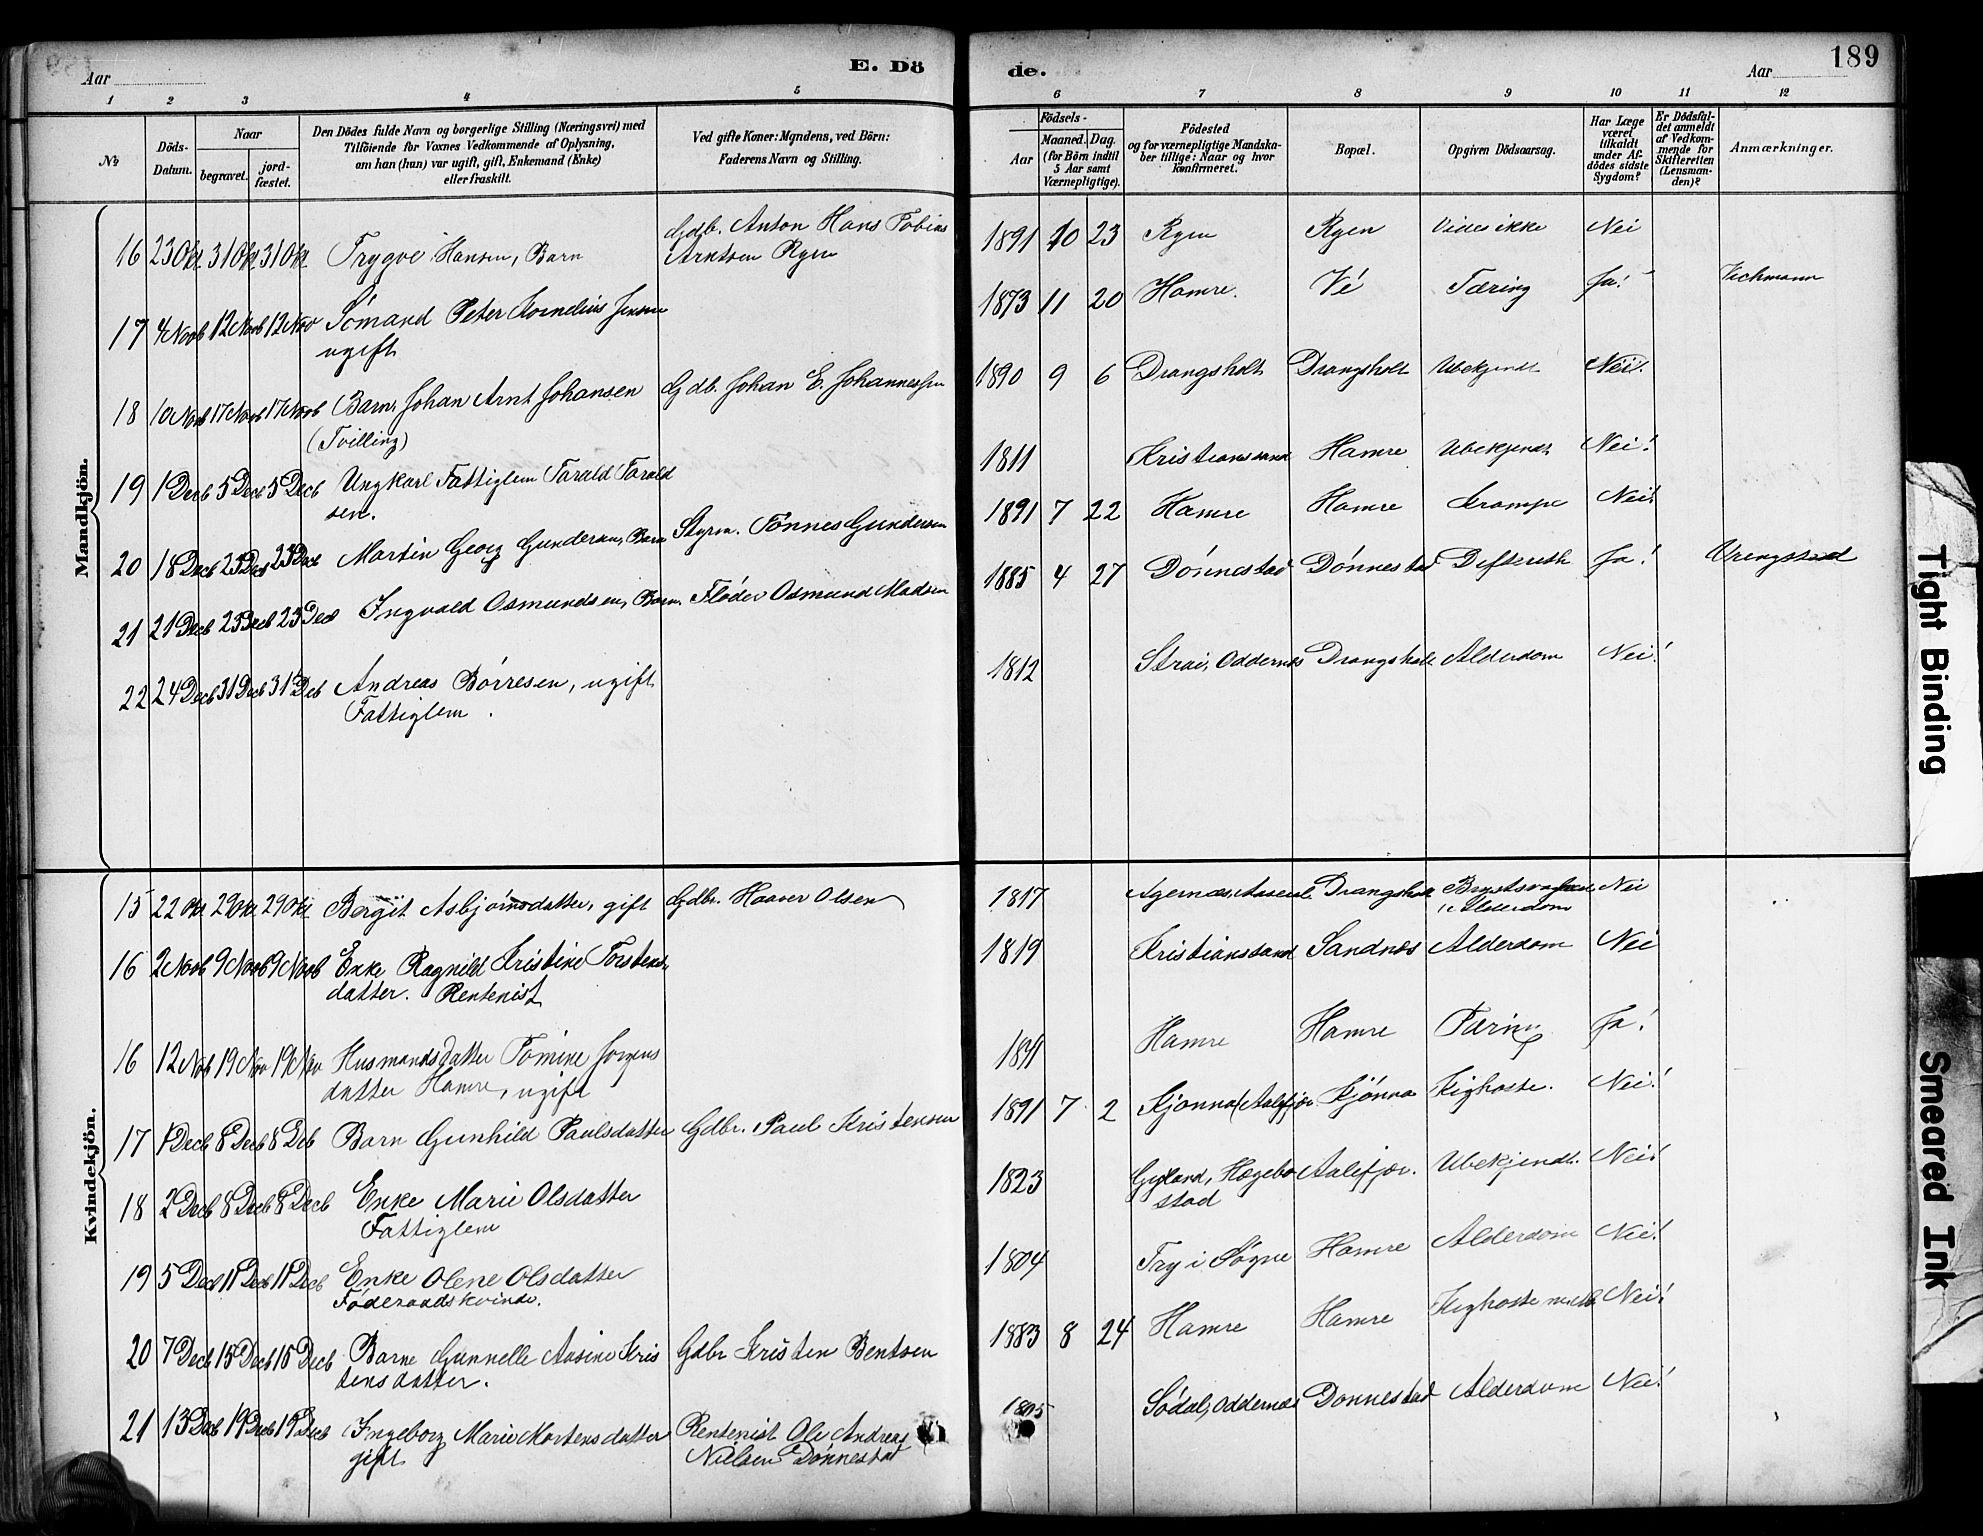 189
Aar
E. Dö
de.
Aar
1 2 3 4 5 6 7 8 9 10 11 12
No
Döds-Datum.
Naar
begravet.
jord-fæstet.
Den Dödes fulde Navn og borgerlige Stilling (Næringsvei) med
Tilföiende for Voxnes Vedkommende af Oplysning,
om han (hun) var ugift, gift, Enkemand (Enke)
eller fraskilt.
Ved gifte Koner: Mandens, ved Börn:
Faderens Navn og Stilling.
Födsels-
Aar
Maaned. Dag.
(for Börn indtil
5 Aar samt
Værnepligtige).
Födested
og for værnepligtige Mandska-
ber tillige: Naar og hvor
konfirmeret.
Bopæl.
Opgiven Dödsaarsag.
Har Læge
været
tilkaldt
under Af-
dödes sidste
Sygdom?
Er Dödsfal-
det anmeldt
af Vedkom-
mende for
Skifteretten
(Lensman-
den)?
Anmærkninger.
Mandkjön.
16 23 Okt 31 Okt 31 Okt Trygve Hansen, Barn Gdb. Anton Hans Tobias
Arntsen Ryen 1891 10 23 Ryen Ryen Vides ikke Nei
17 4 Novb 12 Novb 12 Nov Sömand Peter Kornelius Jensen
ugift 1873 11 20 Hamre. Vé Tæring Ja! Vichmann
18 10 Novb 17 Novb 17 Novb Barn, Johan Arnt Johansen Gdb. Johan E. Johannessen
(Tvilling) 1890 9 6 Drangsholt Drangsholt Ubekjendt Nei!
19 1 Decb 5 Decb 5 Decb Ungkarl Fattiglem Tarald Tarald
sen. 1811 Kristianssand Hamre Ubekjendt Nei!
20 18 Decb 23 Decb 23 Decb Martin Georg Gundersen, Barn Styrm. Tönnes Gundersen 1891 7 22 Hamre Hamre Krampe Nei!
21 21 Decb 23 Decb 23 Dec Ingvald Osmundsen, Barn. Fløder Osmund Madsen 1885 4 27 Dönnestad Dönnestad Difterith Ja! Vrengstad
22 24 Decb 31 Decb 31 Deb Andreas Börresen, ugift
Fattiglem. 1812 Strai, Oddernes Drangsholt Alderdom Nei!
Kvindekjön.
15 22 Okt 29 Okt 29 Okt Bergit Asbjörnsdatter, gift Gdbr. Haaver Olsen 1817 Agernæs, Aaseral. Drangsholt Nei
Alderdom
16 2 Novb 9 Novb 9 Novb Enke Ragnild Kristine Torstens-
datter. Rentenist 1819 Kristianssand Sandnæs Alderdom Nei
16 12 Nob 19 Nov 19 Nov Husmandsdatter Tomine Jorgens
datter Hamre, ugift Hamre Hamre Tæring Ja!
17 1 Decb 8 Decb 8 Deb Barn Gunhild Paulsdatter Gdbr. Paul Kristensen 1891 7 2 Kjonna (Aalefjær. Kjónna Kighoste. Nei!
18 2 Decb 8 Decb 8 Decb Enke Marie Olsdatter
Fattiglem 1823 Gyland, Hægebo
stad Aalefjær. Ubekjendt. Nei!
19 5 Decb 11 Decb 11 Decb Enke Olene Olsdatter
Föderaadskvinde. 1804 Try i Søgne Hamre Alderdom Nei!
20 7 Decb 15 Decb 15 Decb Barne Gunnelle Aasine Kris
tensdatter. Gdbr Kristen Bentsen 1883 8 24 Hamre Hamre Kighoste Nei!
21 13 Decb 19 Decb 19 Decb Ingeborg Marie Mortensdatter
gift Rentenist Ole Andreas
Nielsen Dönnestad 1805 Södal, Oddernes Donnestad Alderdom Nei!
Tight Binding
Smeared Ink